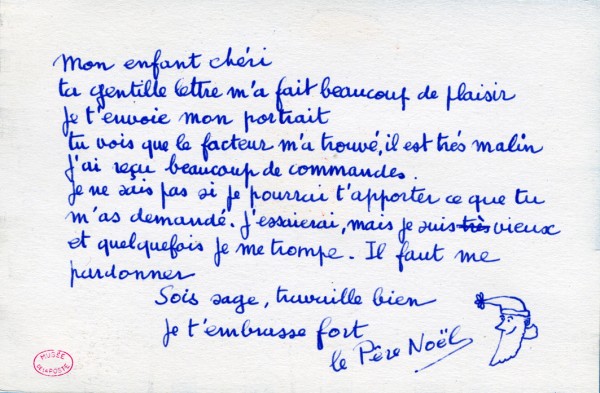 Mon enfant chéri
ta gentille lettre m'a fait beaucoup de plaisir
Je t'envoie mon portrait
tu vois que le facteur m'a trouvé, il est très malin
J'ai reçu beaucoup de commandes.
Je ne sais pas si je pourrai t'apporter ce que tu
m'as demandé. J'essaierai, mais je suis très vieux
et quelquefois je me trompe. Il faut me
pardonner
Sois sage, travaille bien
Je t'embrasse fort
le Père Noël
MUSÉE
DE LA POSTE